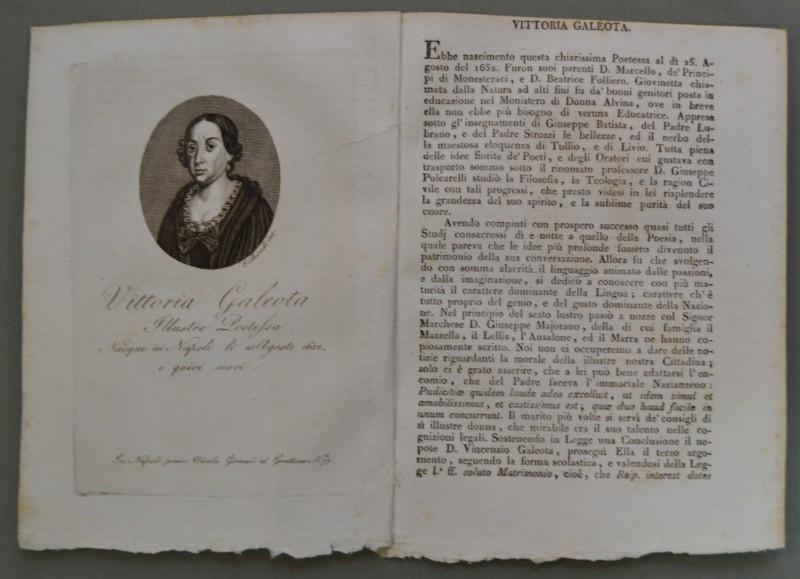 Vittoria Galeota
Illustre Poetessa
Nacque in Napoli li Agosto
e quivi morì
In Napoli presso Nicola Gervasi al Gigante N. 23
VITTORIA GALEOTA.
Ebbe nascimento questa chiarissima Poetessa al dì 25. A-
gosto del 1652. Furon suoi parenti D. Marcello, de' Princi-
pi di Monesteraci, e D. Beatrice Folliero. Giovinetta chia-
mata dalla Natura ad alti fini fu da' buoni genitori posta in
educazione nel Monistero di Donna Alvina, ove in breve
ella non ebbe più bisogno di veruna Educatrice. Apprese
sotto gl' insegnamenti di Giuseppe Batista, del Padre Lu-
brano, e del Padre Strozzi le bellezze, ed il nerbo del-
la maestosa eloquenza di Tullio, e di Livio. Tutta piena
delle idee fiorite de' Poeti, e degli Oratori cui gustava con
trasporto sommo sotto il rinomato professore D. Giuseppe
Pulcarelli studiò la Filosofia, la Teologia, e la ragion Ci-
vile con tali progressi, che presto videsi in lei risplendere
la grandezza del suo spirito, e la sublime purità del suo
cuore.
Avendo compiuti con prospero successo quasi tutti gli
Studj consacrossi dì e notte a quello della Poesia, nella
quale pareva che le idee più profonde fossero divenuto il
patrimonio della sua conversazione. Allora fu che svolgen-
do con somma alacrità il linguaggio animato dalle passioni,
e dalla imaginazione, si dedicò a conoscere con più ma-
turità il carattere dominante della Lingua; carattere ch' è
tutto proprio del genio, e del gusto dominante della Nazio-
ne. Nel principio del sesto lustro passò a nozze col Signor
Marchese D. Giuseppe Majorano, della di cui famiglia il
Mazzella, il Lellis, l' Ansalone, ed il Marra ne hanno co-
piosamente scritto. Noi non ci occuperemo a dare delle no-
tizie riguardanti la morale della illustre nostra Cittadina;
solo ci è grato asserire, che a lei può bene adattarsi l' en-
comio, che del Padre faceva l' immortale Nazianzeno:
Pudicitiæ quidem laude adeo excelluit, ut idem simul et
amabilissimus, et castissimus est; quæ duo haud facile in
unum concurrunt. Il marito più volte si servì de' consigli di
sì illustre donna, che mirabile era il suo talento nelle co-
gnizioni legali. Sostenendo in Legge una Conclusione il ne-
pote D. Vincenzio Galeota, proseguì Ella il terzo argo-
mento, seguendo la forma scolastica, e valendosi della Leg-
ge I.ª ff. soluto Matrimonio, cioè, che Reip. interest dotes